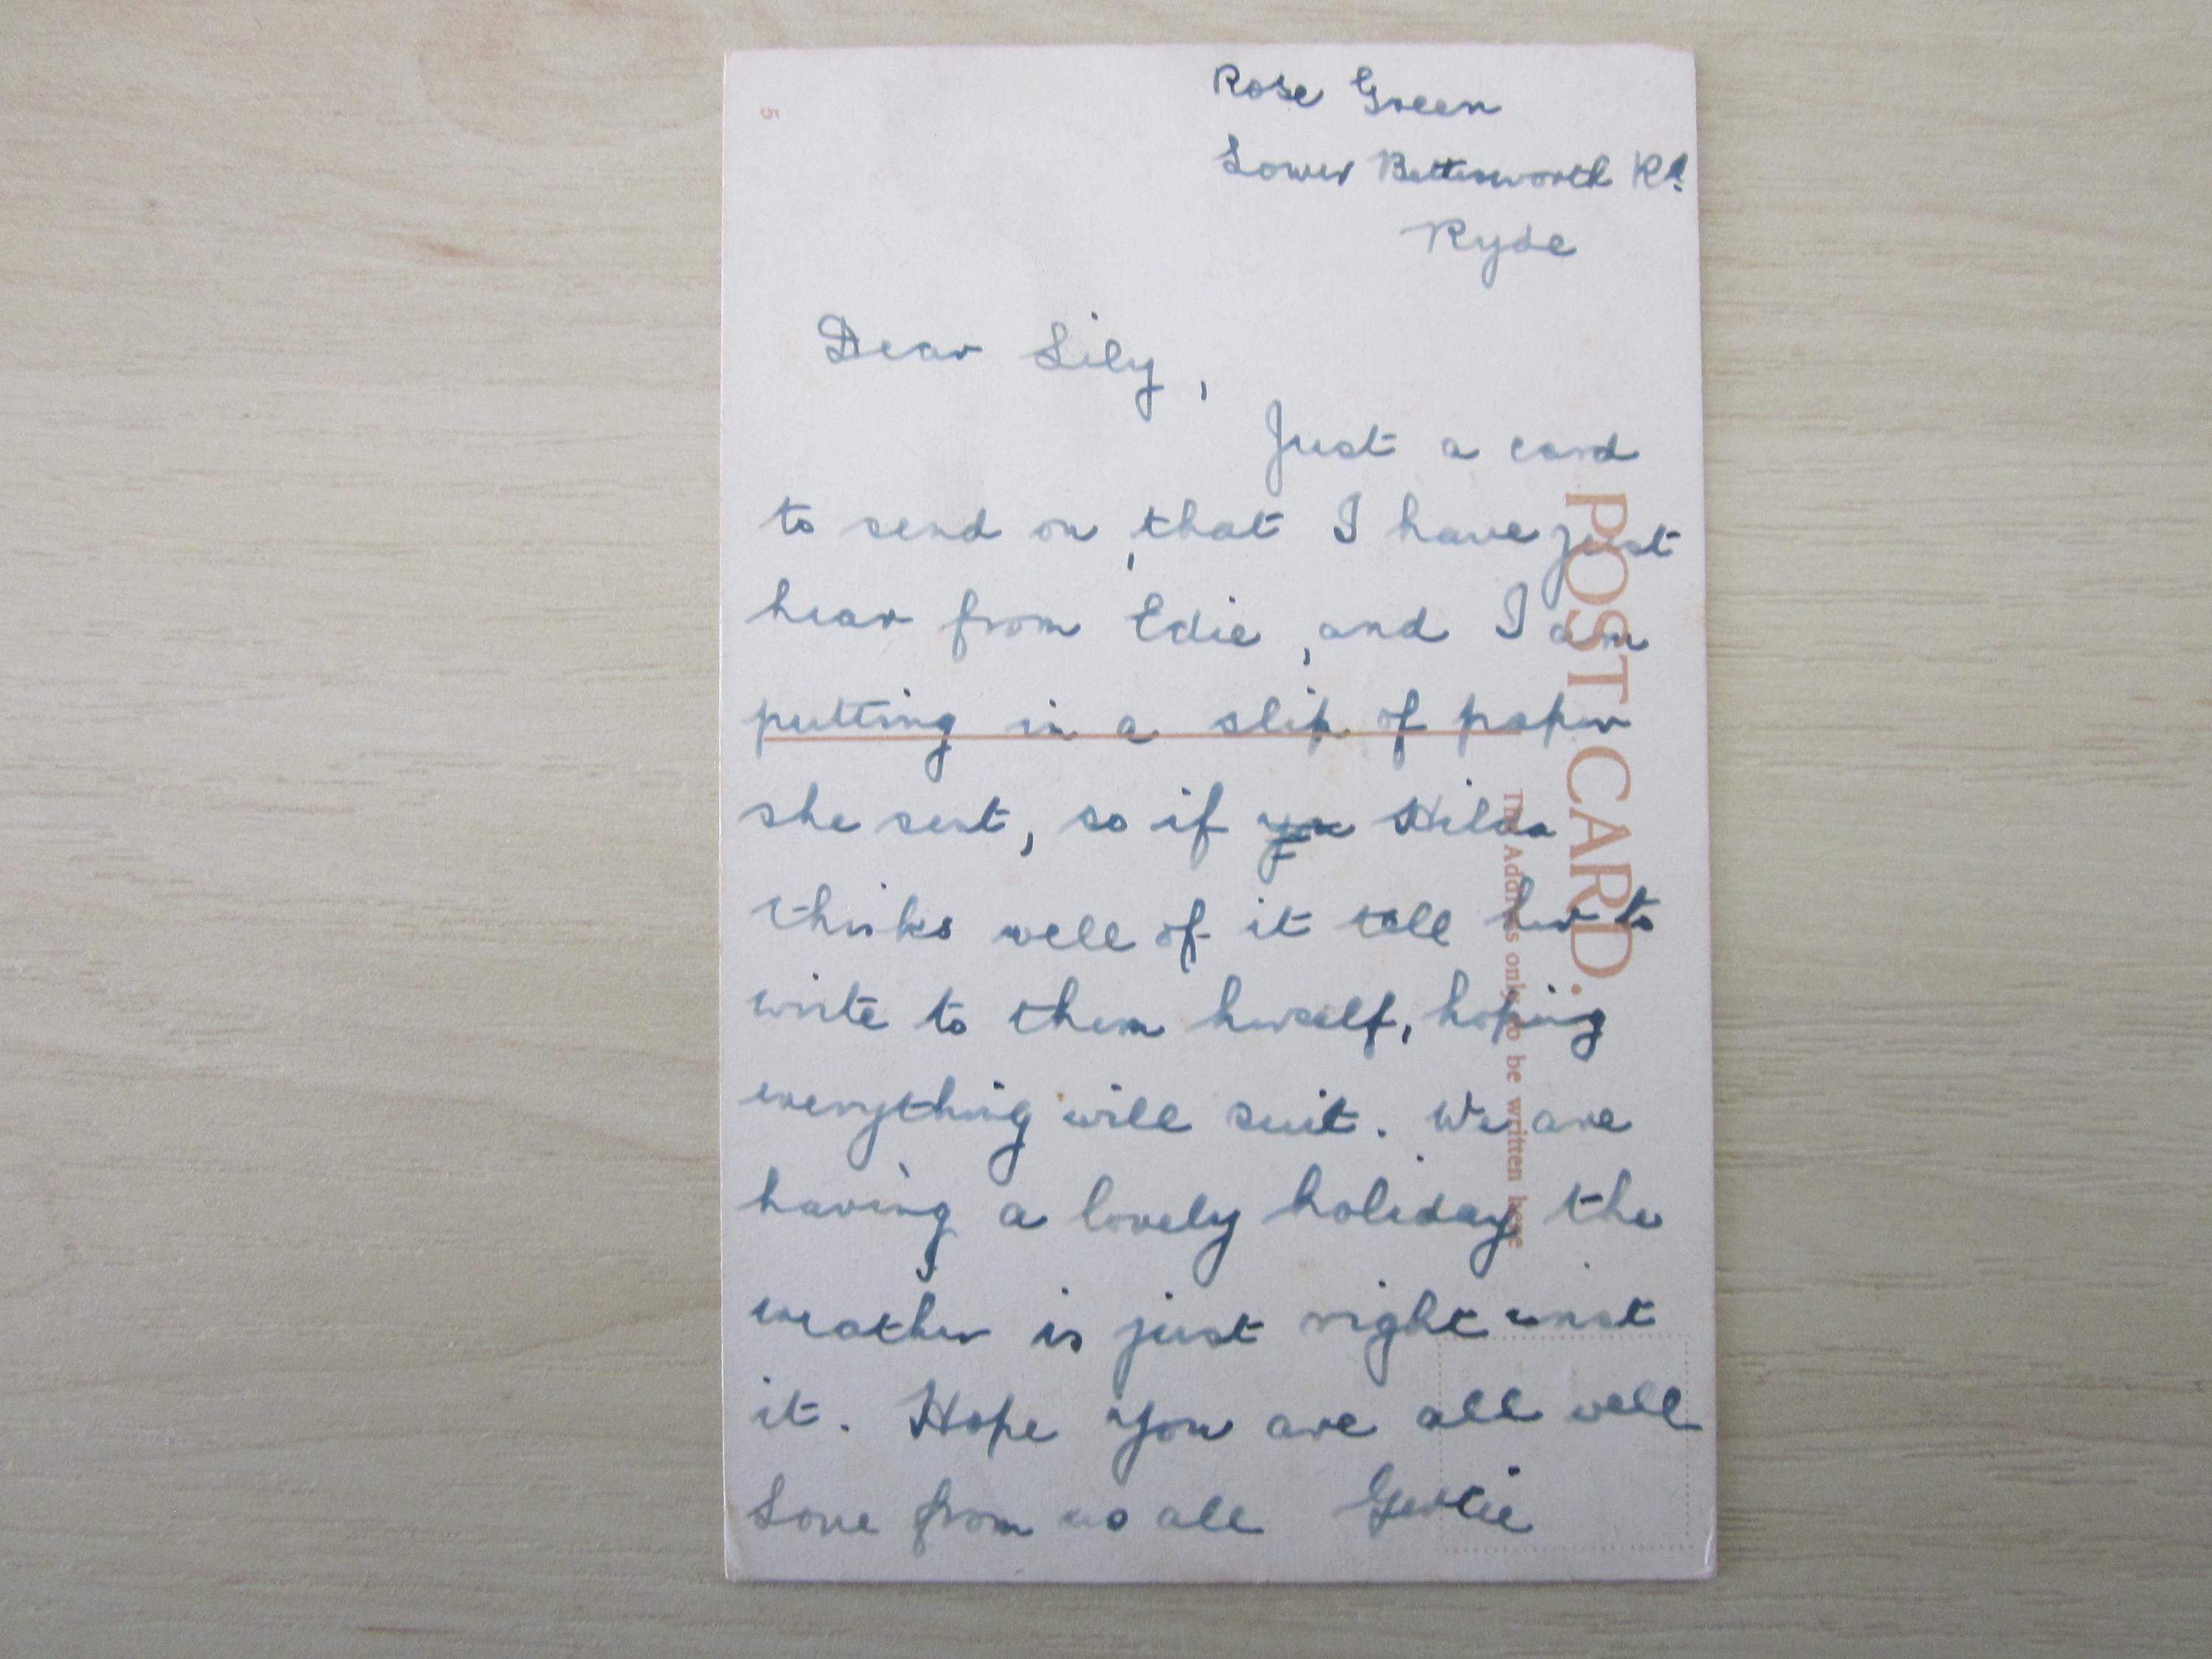 Rose Green
Lower Bettesworth Rd
Ryde
Dear Lily,
Just a card
to send on, that I have just
hear from Edie, and I am
putting in a slip of paper
she sent, so if Hilda
thinks well of it tell her to
write to them herself, hoping
everything will suit. We are
having a lovely holiday the
weather is just right isnt
it. Hope you are all well
Love from us all Gertie
POST CARD.
The Address only to be written here
5